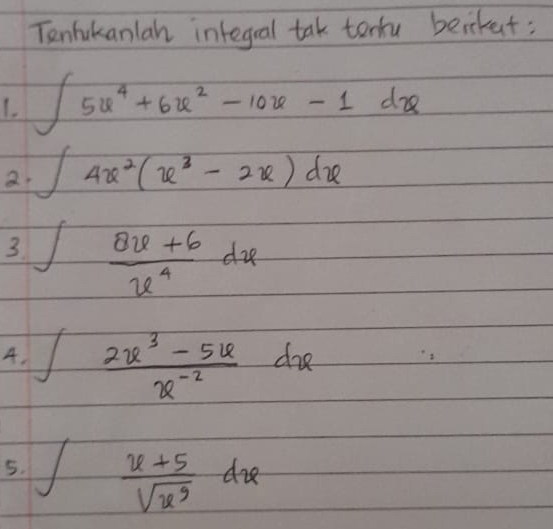 Tentukanlah integral tak tentu berikut:
1. ∫ 5x⁴ + 6x² - 10x - 1 dx
2. ∫ 4x² (x³ - 2x) dx
3. ∫ (8x + 6)/x⁴ dx
4. ∫ (2x³ - 5x)/x⁻² dx
5. ∫ (x + 5)/√x⁵ dx